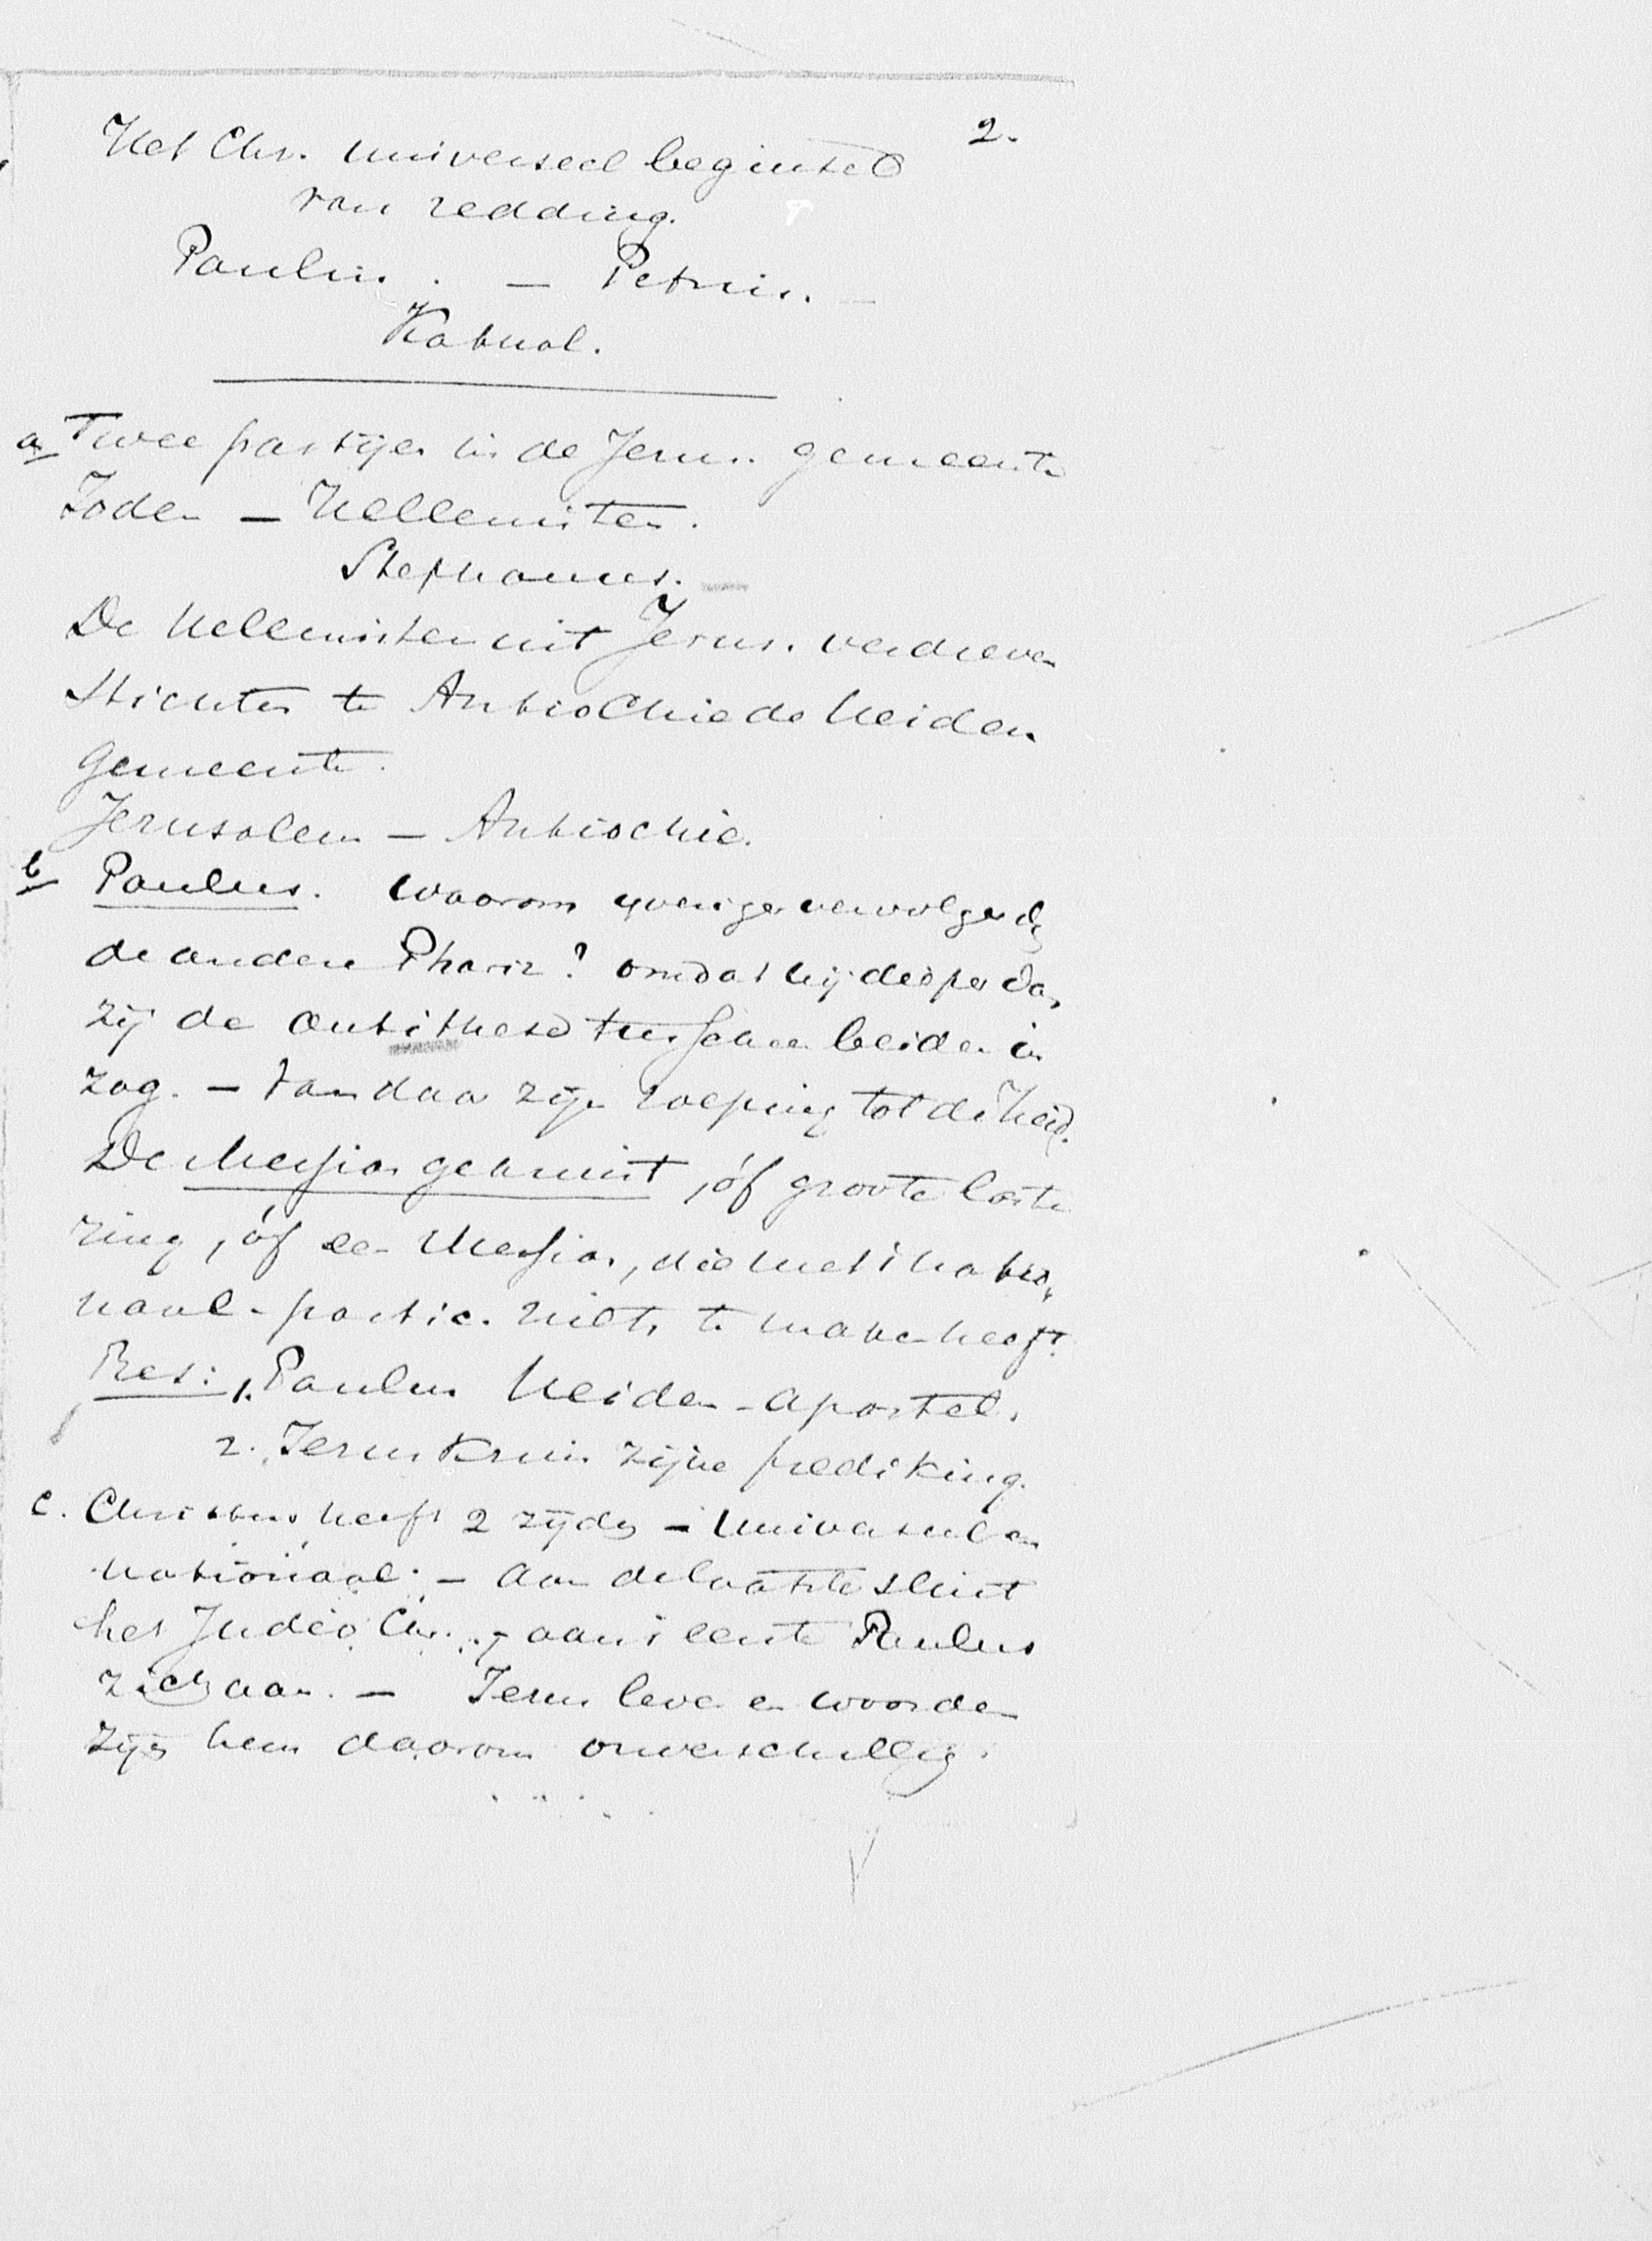 2.
Het Chr. universeel beginsel
van redding.
Paulus. — Petrus. —
Kathol.
a Twee partijen in de Jeru. gemeente
Joden — Hellenisten.
Stephanus.
De Hellenisten uit Jerus. verdreven
stichten te Antiochie de heiden
gemeente.
Jerusalem — Antiochie.
b Paulus. Waarom
de andere Phariz? omdat hij dieper dan
zij de antithese tusschen beiden in
zag. — Van daar zijn roeping tot de Heid.
De Messias gekruist, óf groote laste
ring, óf een Messias, die met 't natio
naal-partic. niets te maken heeft.
Res: 1. Paulus Heiden-apostel.
2. Jezus kruis zijne prediking.
c. Christus heeft 2 zijden — Universeel en
nationaal. — Aan de laatste sluit
het Judeo Chr. — aan 't eerste Paulus
zich aan. — Jezus leven en woorden
zijn hem daarom onverschillig.